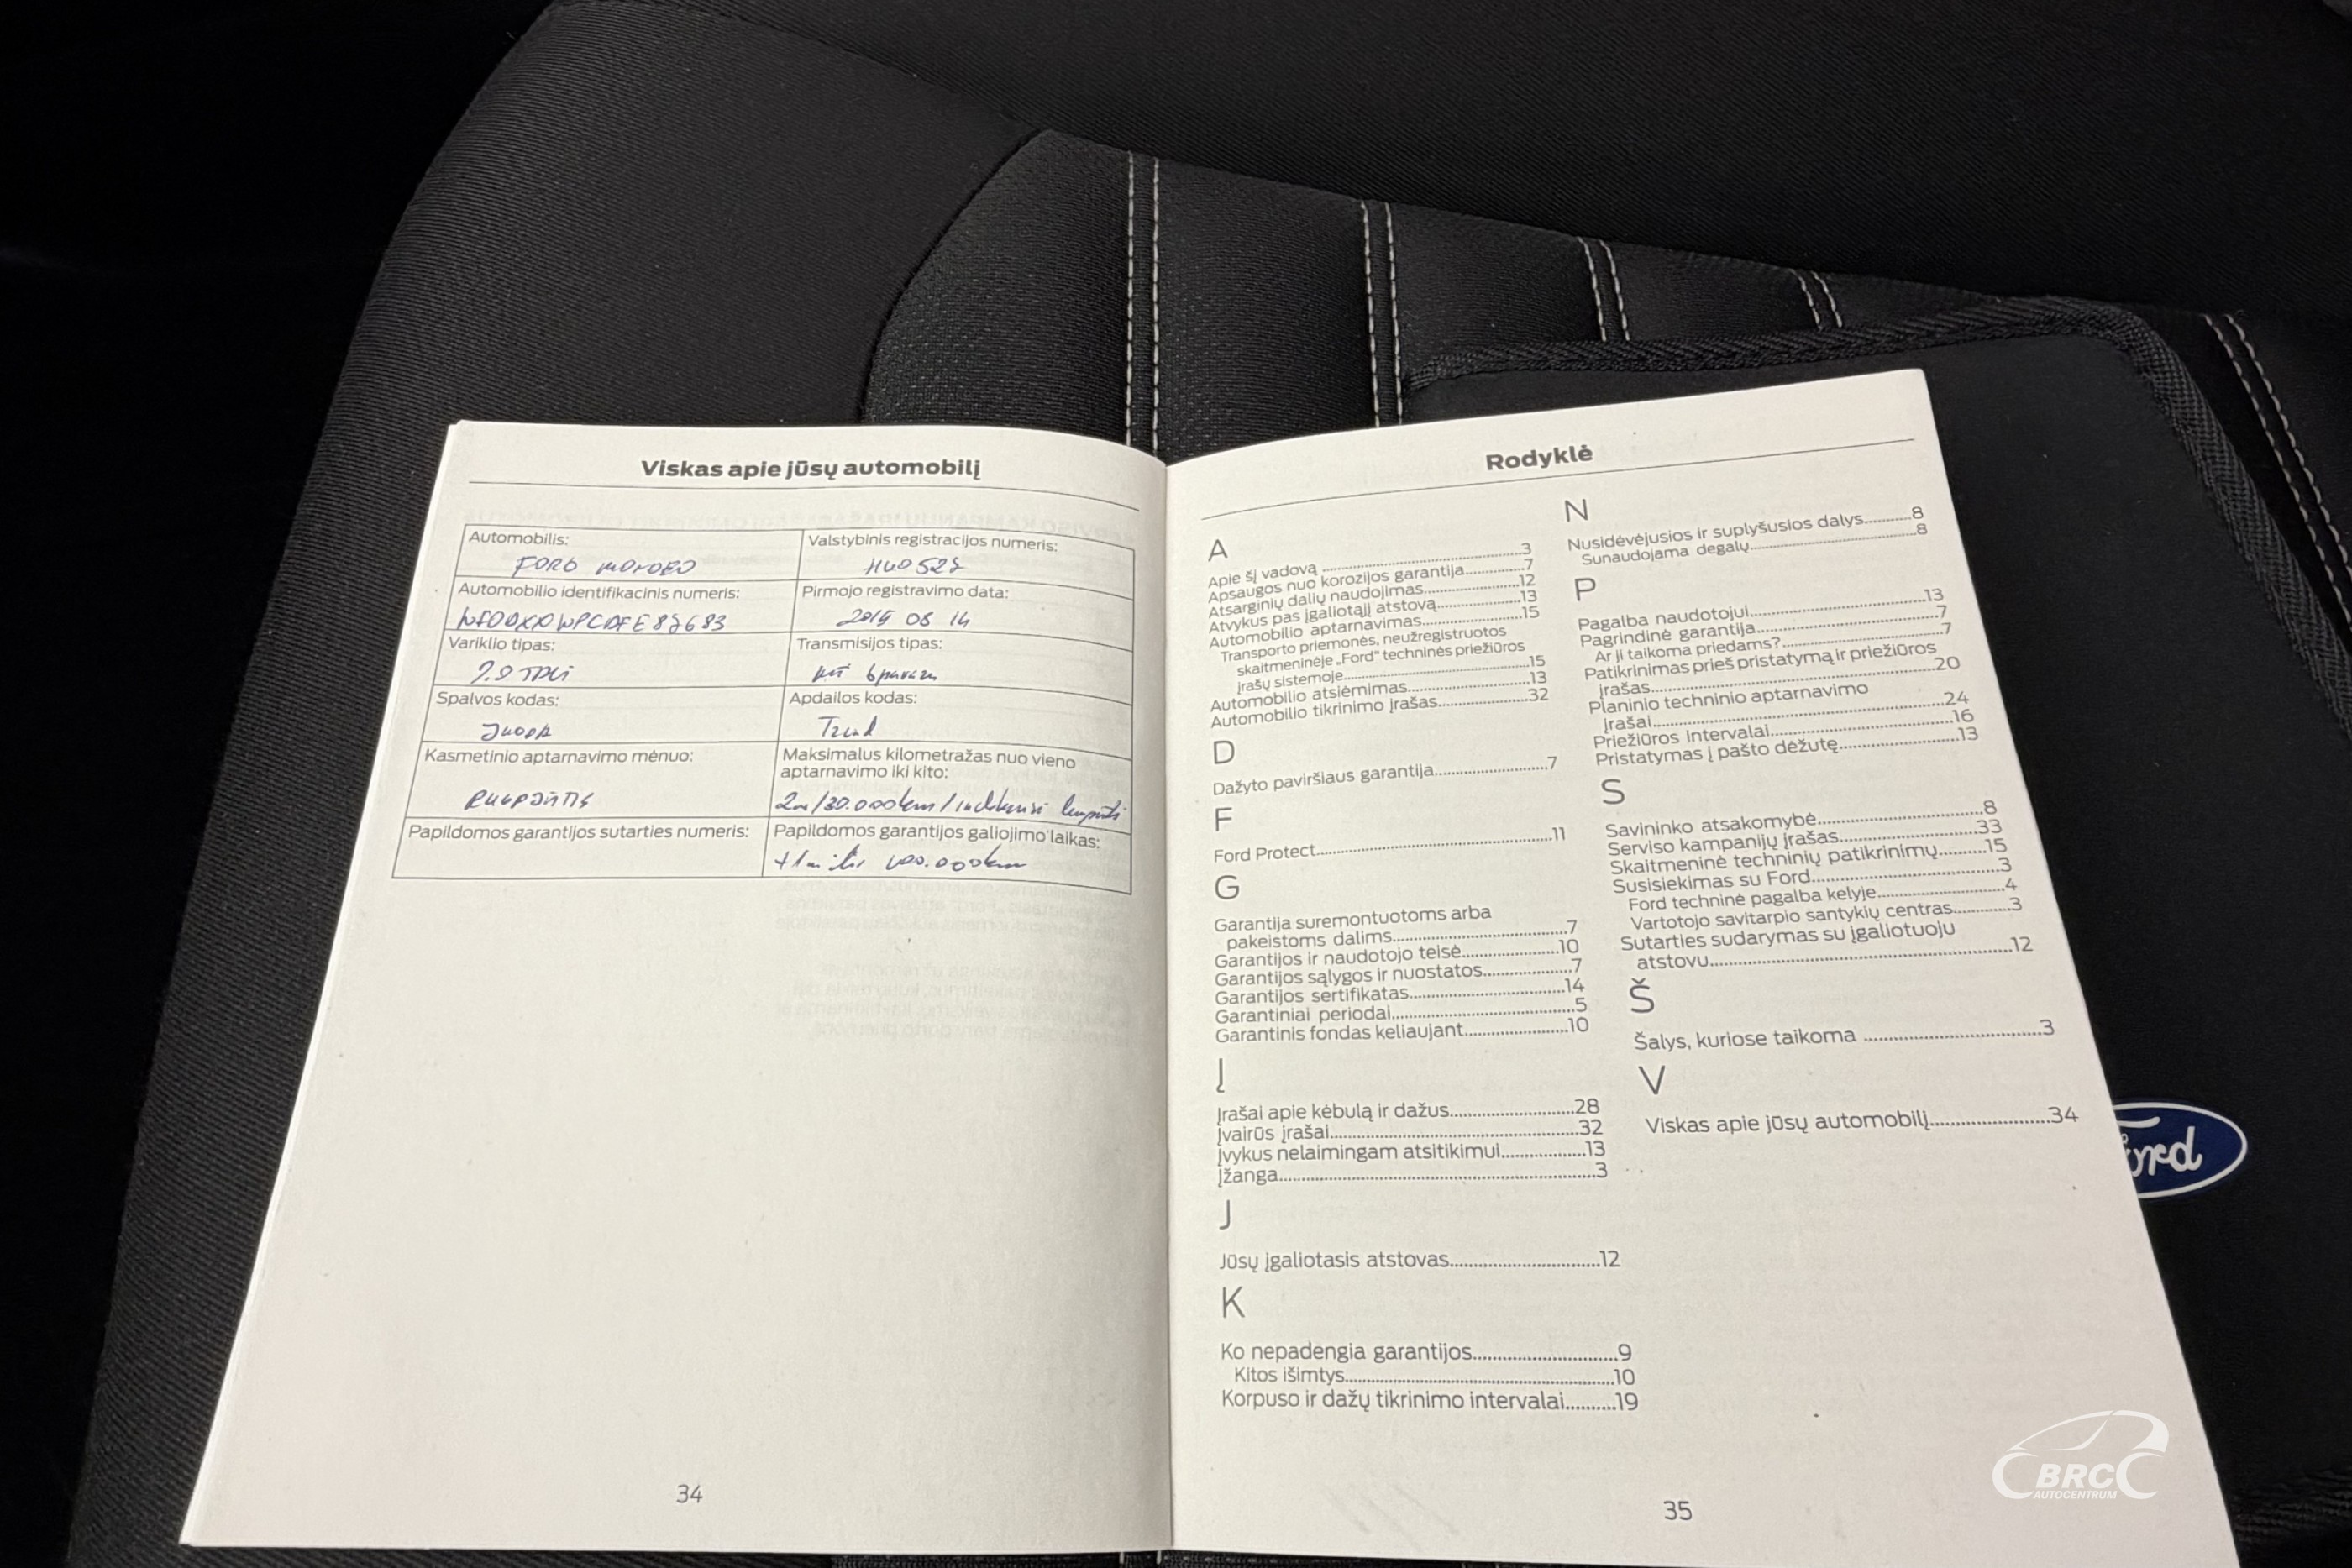 Viskas apie jūsų automobilį
Automobilis:
FORD MONDEO
Valstybinis registracijos numeris:
Automobilio identifikacinis numeris:
Pirmojo registravimo data:
08 14
Variklio tipas:
TDCi
Transmisijos tipas:
Spalvos kodas:
JUODA
Apdailos kodas:
Trend
Kasmetinio aptarnavimo mėnuo:
Maksimalus kilometražas nuo vieno
aptarnavimo iki kito:
2m/30.000km/
Papildomos garantijos sutarties numeris:
Papildomos garantijos galiojimo laikas:
34
Rodyklė
A
Apie šį vadovą ...3
Apsaugos nuo korozijos garantija...7
Atsarginių dalių naudojimas...12
Atvykus pas įgaliotąjį atstovą...13
Automobilio aptarnavimas...15
Transporto priemonės, neužregistruotos
skaitmeninėje „Ford“ techninės priežiūros
įrašų sistemoje...15
Automobilio atsiėmimas...13
Automobilio tikrinimo įrašas...32
D
Dažyto paviršiaus garantija...7
F
Ford Protect...11
G
Garantija suremontuotoms arba
pakeistoms dalims...7
Garantijos ir naudotojo teisė...10
Garantijos sąlygos ir nuostatos...7
Garantijos sertifikatas...14
Garantiniai periodai...5
Garantinis fondas keliaujant...10
Į
Įrašai apie kėbulą ir dažus...28
Įvairūs įrašai...32
Įvykus nelaimingam atsitikimui...13
Įžanga...3
J
Jūsų įgaliotasis atstovas...12
K
Ko nepadengia garantijos...9
Kitos išimtys...10
Korpuso ir dažų tikrinimo intervalai...19
N
Nusidėvėjusios ir suplyšusios dalys...8
Sunaudojama degalų...8
P
Pagalba naudotojui...13
Pagrindinė garantija...7
Ar ji taikoma priedams?...7
Patikrinimas prieš pristatymą ir priežiūros
įrašas...20
Planinio techninio aptarnavimo
įrašai...24
Priežiūros intervalai...16
Pristatymas į pašto dėžutę...13
S
Savininko atsakomybė...8
Serviso kampanijų įrašas...33
Skaitmeninė techninių patikrinimų...15
Susisiekimas su Ford...3
Ford techninė pagalba kelyje...4
Vartotojo savitarpio santykių centras...3
Sutarties sudarymas su įgaliotuoju
atstovu...12
Š
Šalys, kuriose taikoma ...3
V
Viskas apie jūsų automobilį...34
35
Ford
BRC
AUTOCENTRUM